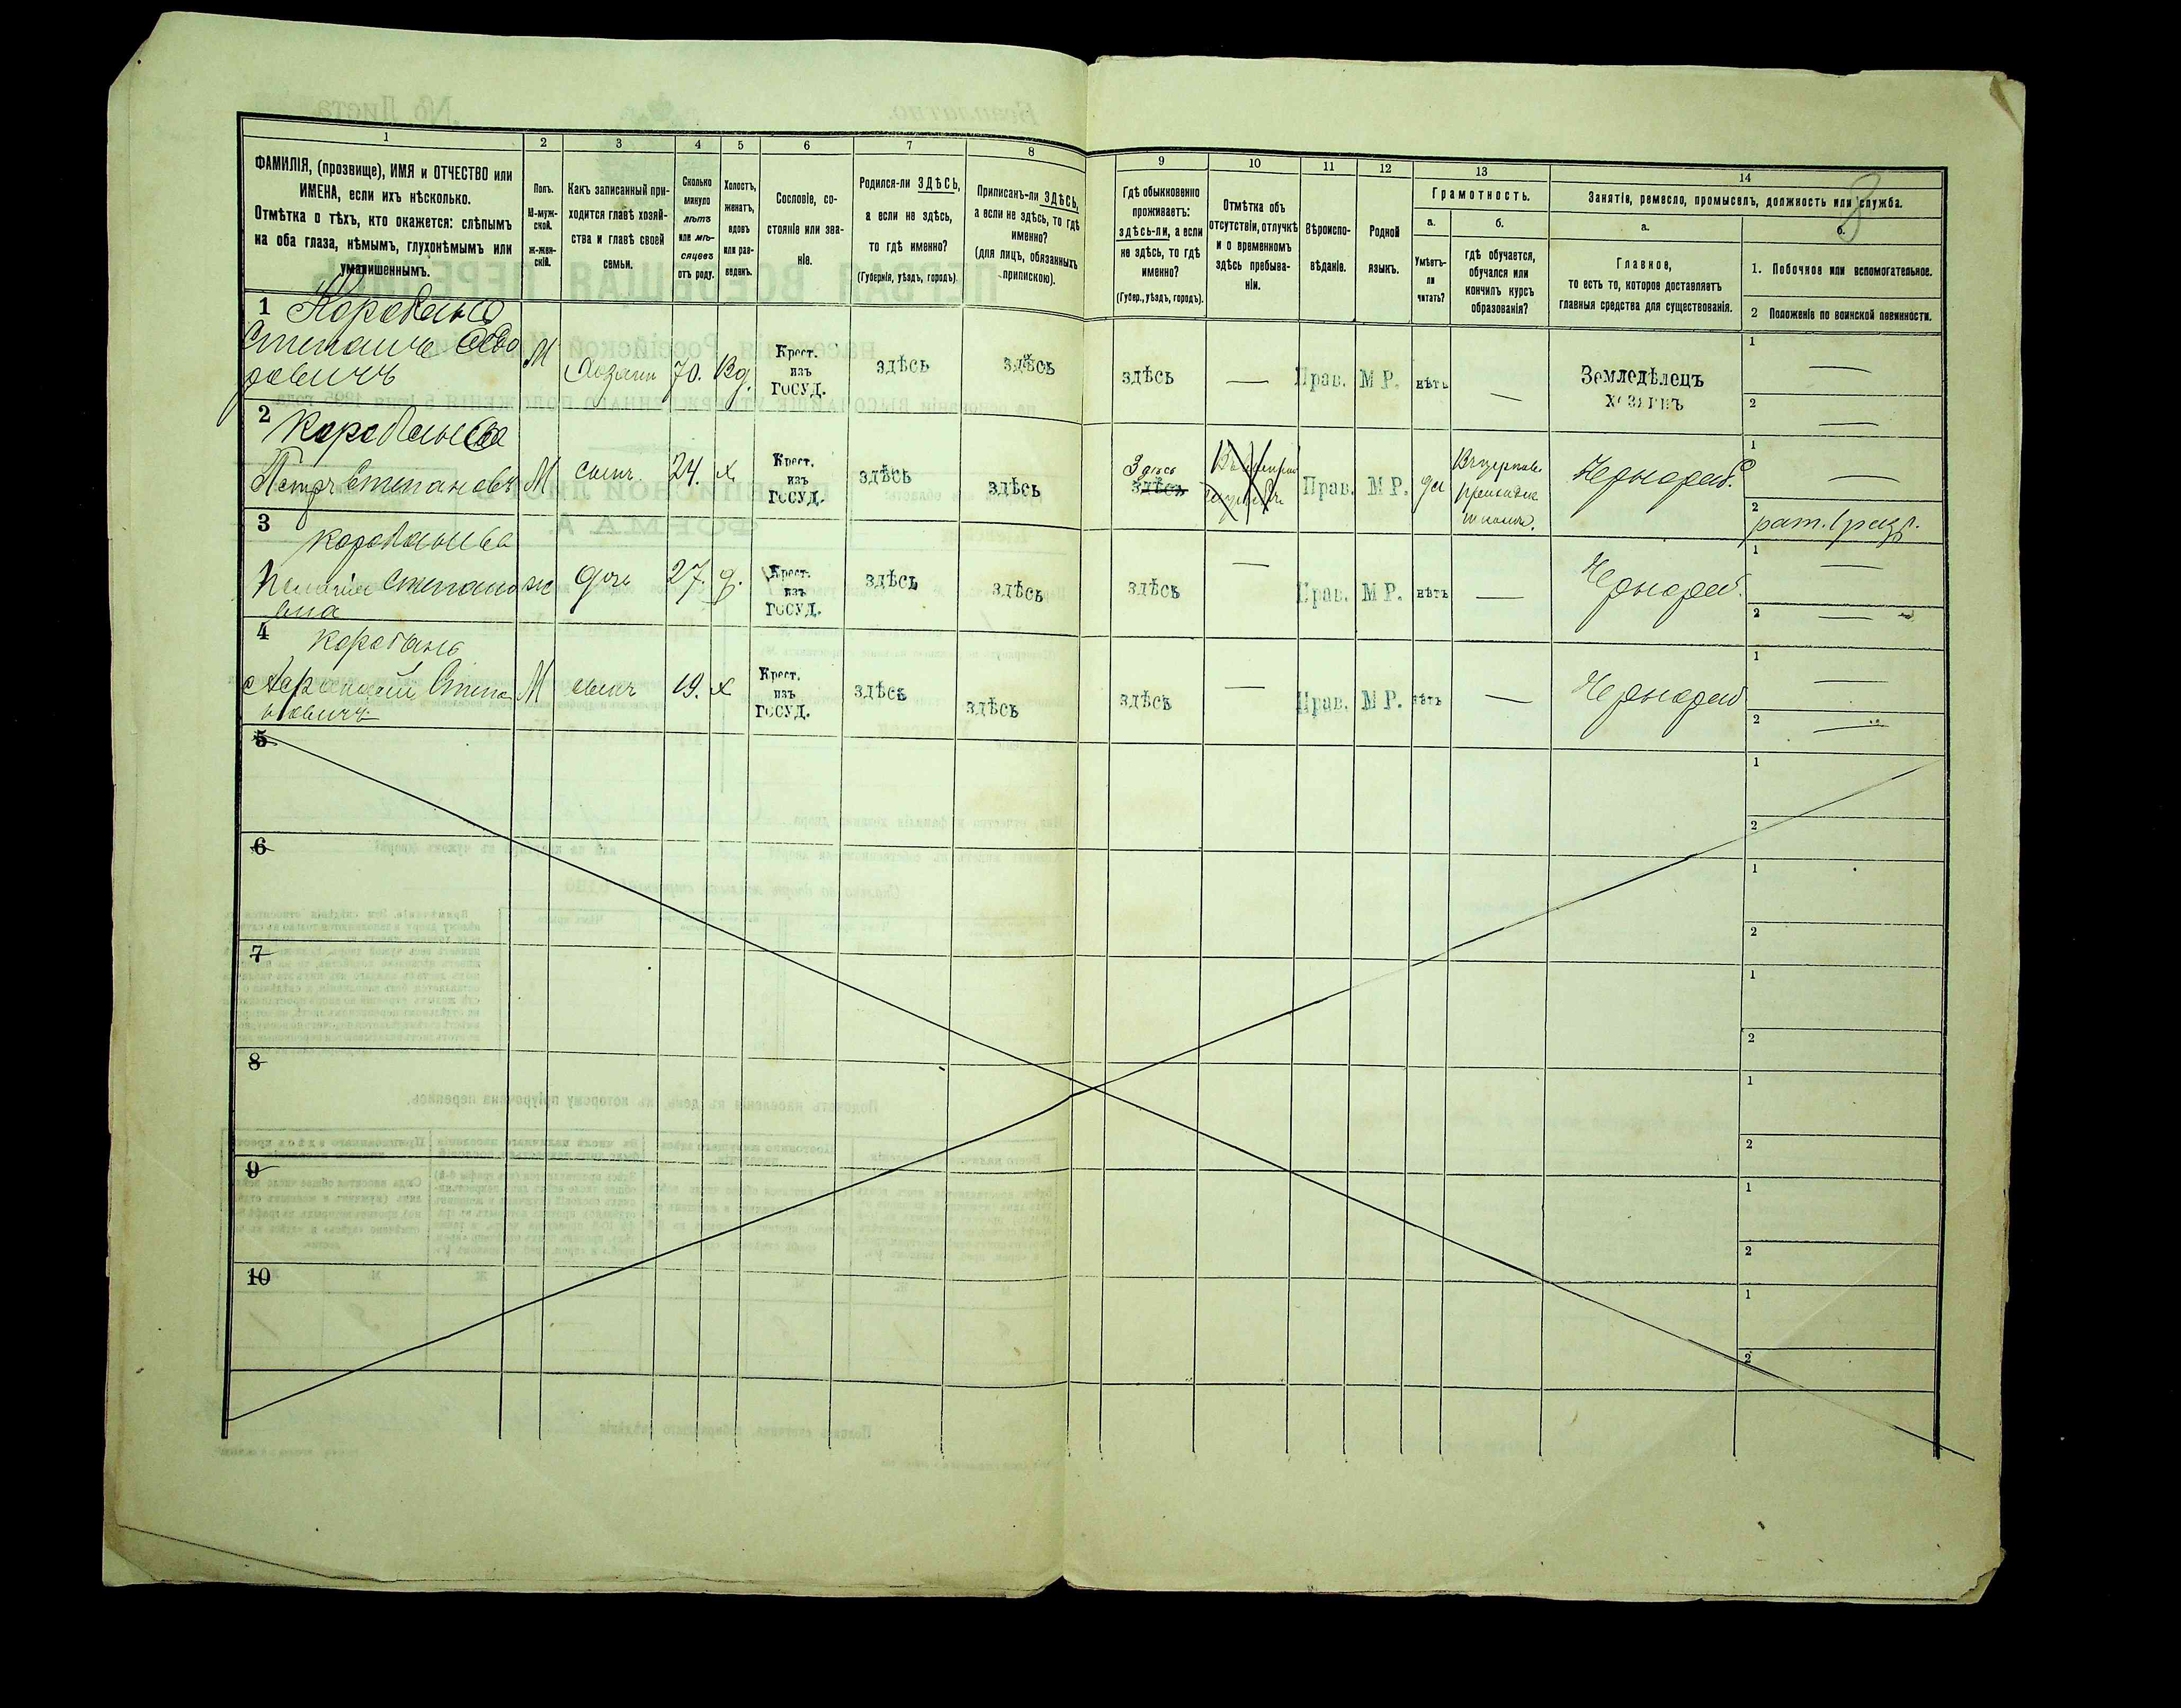 1
2
3
4
5
6
7
8
9
10
11
12
13
14
ФАМИЛІЯ, (прозвище), ИМЯ и ОТЧЕСТВО или
ИМЕНА, если ихъ нѣсколько.
Отмѣтка о тѣхъ, кто окажется: слѣпымъ
на оба глаза, нѣмымъ, глухонѣмымъ или
умалишеннымъ.
Полъ.
М-муж-
ской.
Ж-жен-
скій.
Какъ записанный при-
ходится главѣ хозяй-
ства и главѣ своей
семьи.
Сколько
минуло
лѣтъ
или мѣ-
сяцевъ
отъ роду.
Холостъ,
женатъ,
вдовъ
или раз-
веденъ.
Сословіе, со-
стояніе или зва-
ніе.
Родился-ли ЗДѢСЬ,
а если не здѣсь,
то гдѣ именно?
(Губернія, уѣздъ, городъ).
Приписанъ-ли ЗДѢСЬ,
а если не здѣсь, то гдѣ
именно?
(для лицъ, обязанныхъ
припискою).
Гдѣ обыкновенно
проживаетъ:
здѣсь-ли, а если
не здѣсь, то гдѣ
именно?
(Губер., уѣздъ, городъ).
Отмѣтка объ
отсутствіи, отлучкѣ
и о временномъ
здѣсь пребыва-
ніи.
Вѣроиспо-
вѣданіе.
Родной
языкъ.
Грамотность.
а.
Умѣетъ-
ли
читать?
б.
гдѣ обучается,
обучался или
кончилъ курсъ
образованія?
Занятіе, ремесло, промыселъ, должность или служба.
8
а.
Главное,
то есть то, которое доставляетъ
главныя средства для существованія.
б.
1. Побочное или вспомогательное.
2 Положеніе по воинской повинности.
1 Коробань
Степанъ Ѳедо
ровичъ
М Хозяин 70. Вд. Крест.
изъ
ГОСУД.
здѣсь здѣсь здѣсь — Прав. М Р. нѣтъ — Земледѣлецъ
хозяинъ
1 —
2 —
2 Коробань
Петръ Степановъ М сынъ. 24. х Крест.
изъ
ГОСУД.
здѣсь здѣсь Здѣсь
здѣсь
Прав. М Р. да
школѣ.
Чернораб.
1 —
2 рат. 1 разр.
3
Пелагія Степано
вна
ж дочь 27. д. Крест.
изъ
ГОСУД.
здѣсь здѣсь здѣсь — Прав. М Р. нѣтъ — Чернораб.
1 —
2 —
4 Коробань
Степа
новичъ
М сынъ 19. х Крест.
изъ
ГОСУД.
здѣсь здѣсь здѣсь — Прав. М Р. нѣтъ — Чернораб
1 —
2 —
5
1
2
6
1
2
7
1
2
8
1
2
9
1
2
10
1
2